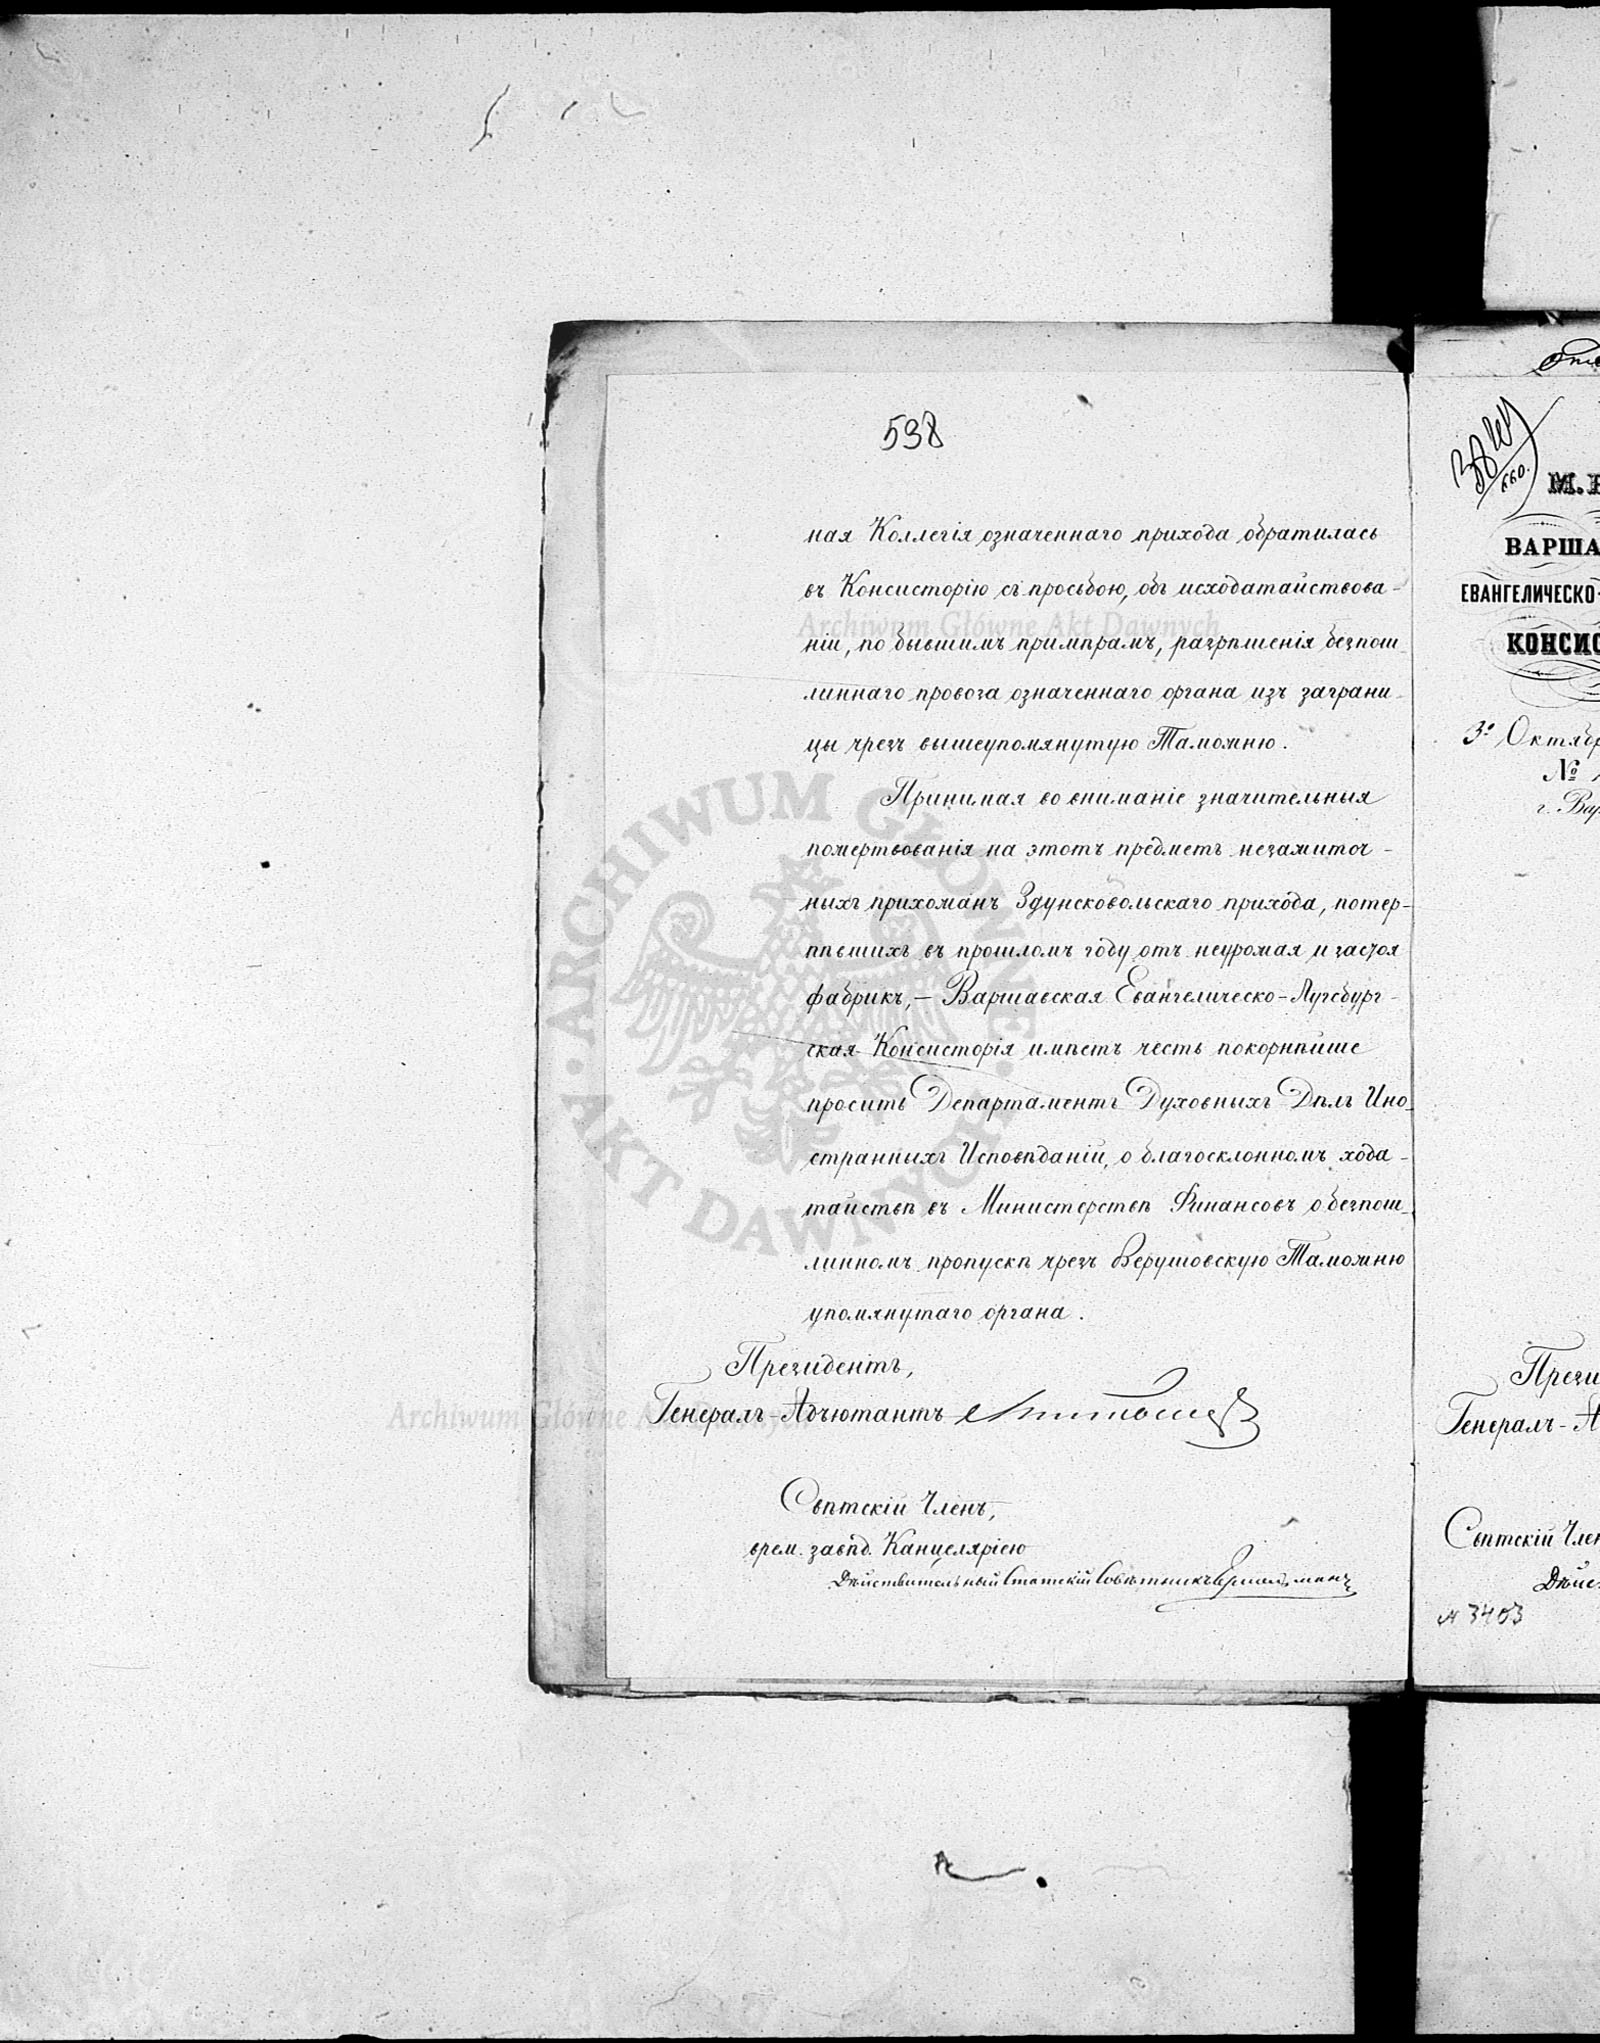 538
ная Коллегія означеннаго прихода обратилась
въ Консисторію съ просьбою, объ исходатайствова-
ніи, по бывшимъ примѣрамъ, разрѣшенія безпош-
линнаго провоза означеннаго органа изъ заграни-
цы чрезъ вышеупомянутую Таможню.
Принимая во вниманіе значительныя
пожертвованія на этотъ предметъ незажиточ-
ныхъ прихожанъ Здунсковольскаго прихода, потер-
пѣвшихъ въ прошломъ году отъ неурожая и застоя
фабрикъ,— Варшавская Евангелическо-Аугсбург-
ская Консисторія имѣетъ честь покорнѣйше
просить Департаментъ Духовныхъ Дѣлъ Ино-
странныхъ Исповѣданій, о благосклонномъ хода-
тайствѣ въ Министерствѣ Финансовъ о безпош-
линномъ пропускѣ чрезъ Верушовскую Таможню
упомянутаго органа.
Президентъ,
Генералъ-Адъютантъ
Свѣтскій Членъ,
врем. завѣд. Канцеляріею
Дѣйствительный Статскій Совѣтникъ
660.
М.
ВАРША
ЕВАНГЕЛИЧЕСКО-
КОНСИС
3º Октябр
№
г. Вар
Прези
Генералъ-А
Свѣтскій Член
Дѣйс
№ 3403
ARCHIWUM GŁÓWNE AKT DAWNYCH
Archiwum Główne Akt Dawnych
Archiwum Główne Akt Dawnych